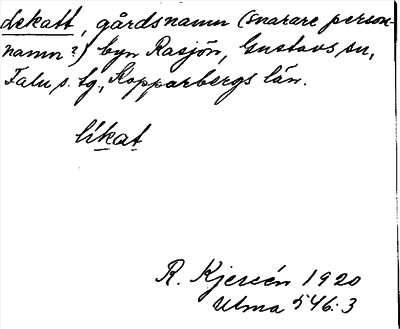 dekatt, gårdsnamn (snarare person-
namn?) byn Rasjön, Gustavs sn,
Falu s. tg, Kopparbergs län.
likat
R. Kjersén 1920
Ulma 546:3